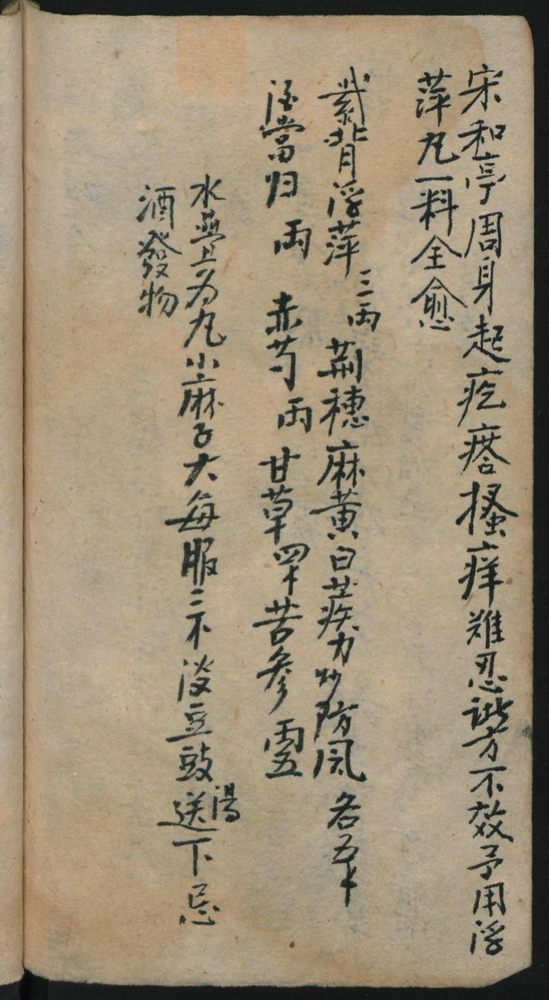 宋和亭周身起疙瘩搔痒难忍诸方不效予用浮
萍丸一料全愈
紫背浮萍三两 荆穗 麻黄 白芷 疾力炒 防风 各五
酒當归 两 赤芍 两 甘草 苦参
水叠为丸小麻子大每服二不淡豆豉湯送下忌
酒發物